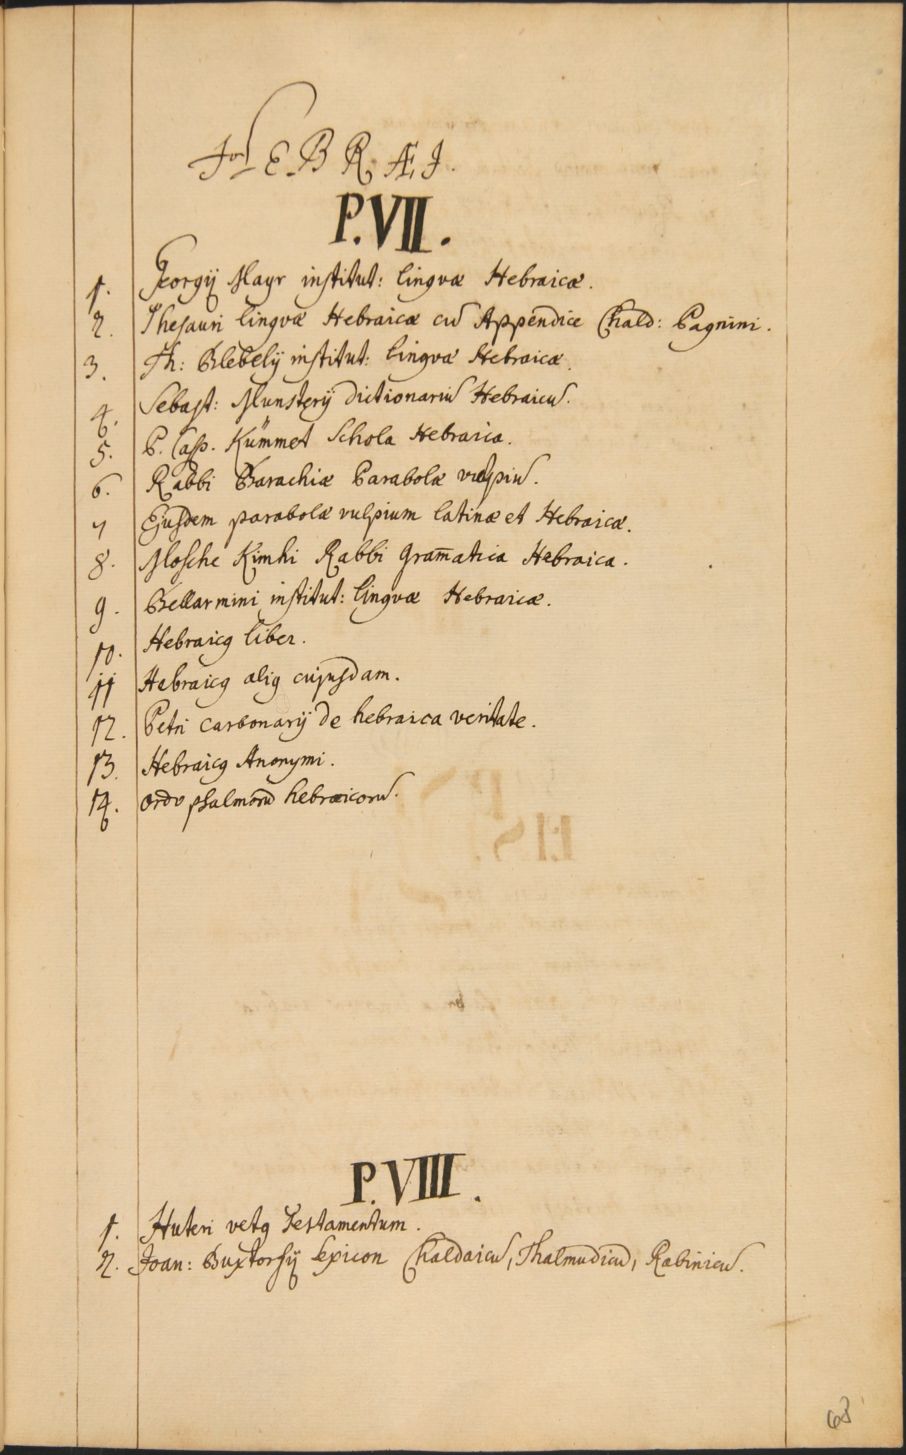 HEBRÆI.
P.VII.
1. Georgij Mayr institut: linguæ Hebraicæ.
2. Thesauri linguæ Hebraicæ cū Appendice Chald: Pagnini.
3. Th: Blebelij institut: linguæ Hebraicæ.
4. Sebast: Munsterij dictionariū Hebraicū.
5. P. Casp. Kümmet Schola Hebraica.
6. Rabbi Barachiæ Parabolæ vulpiū.
7 Ejusdem parabolæ vulpium latinæ et Hebraicæ.
8. Mosche Kimhi Rabbi Gram̄atica Hebraica.
9. Bellarmini institut: linguæ Hebraicæ.
10. Hebraicꝰ liber.
11 Hebraicꝰ aliꝰ cujusdam.
12. Petri Carbonarij de hebraica veritate.
13. Hebraicꝰ Anonymi.
14. Ordo psalmorū hebraicorū.
P.VIII.
1. Huteri vetꝰ Testamentum.
2. Joan: Buxtorfij lexicon Chaldaicū, Thalmudicū, Rabinicū.
63